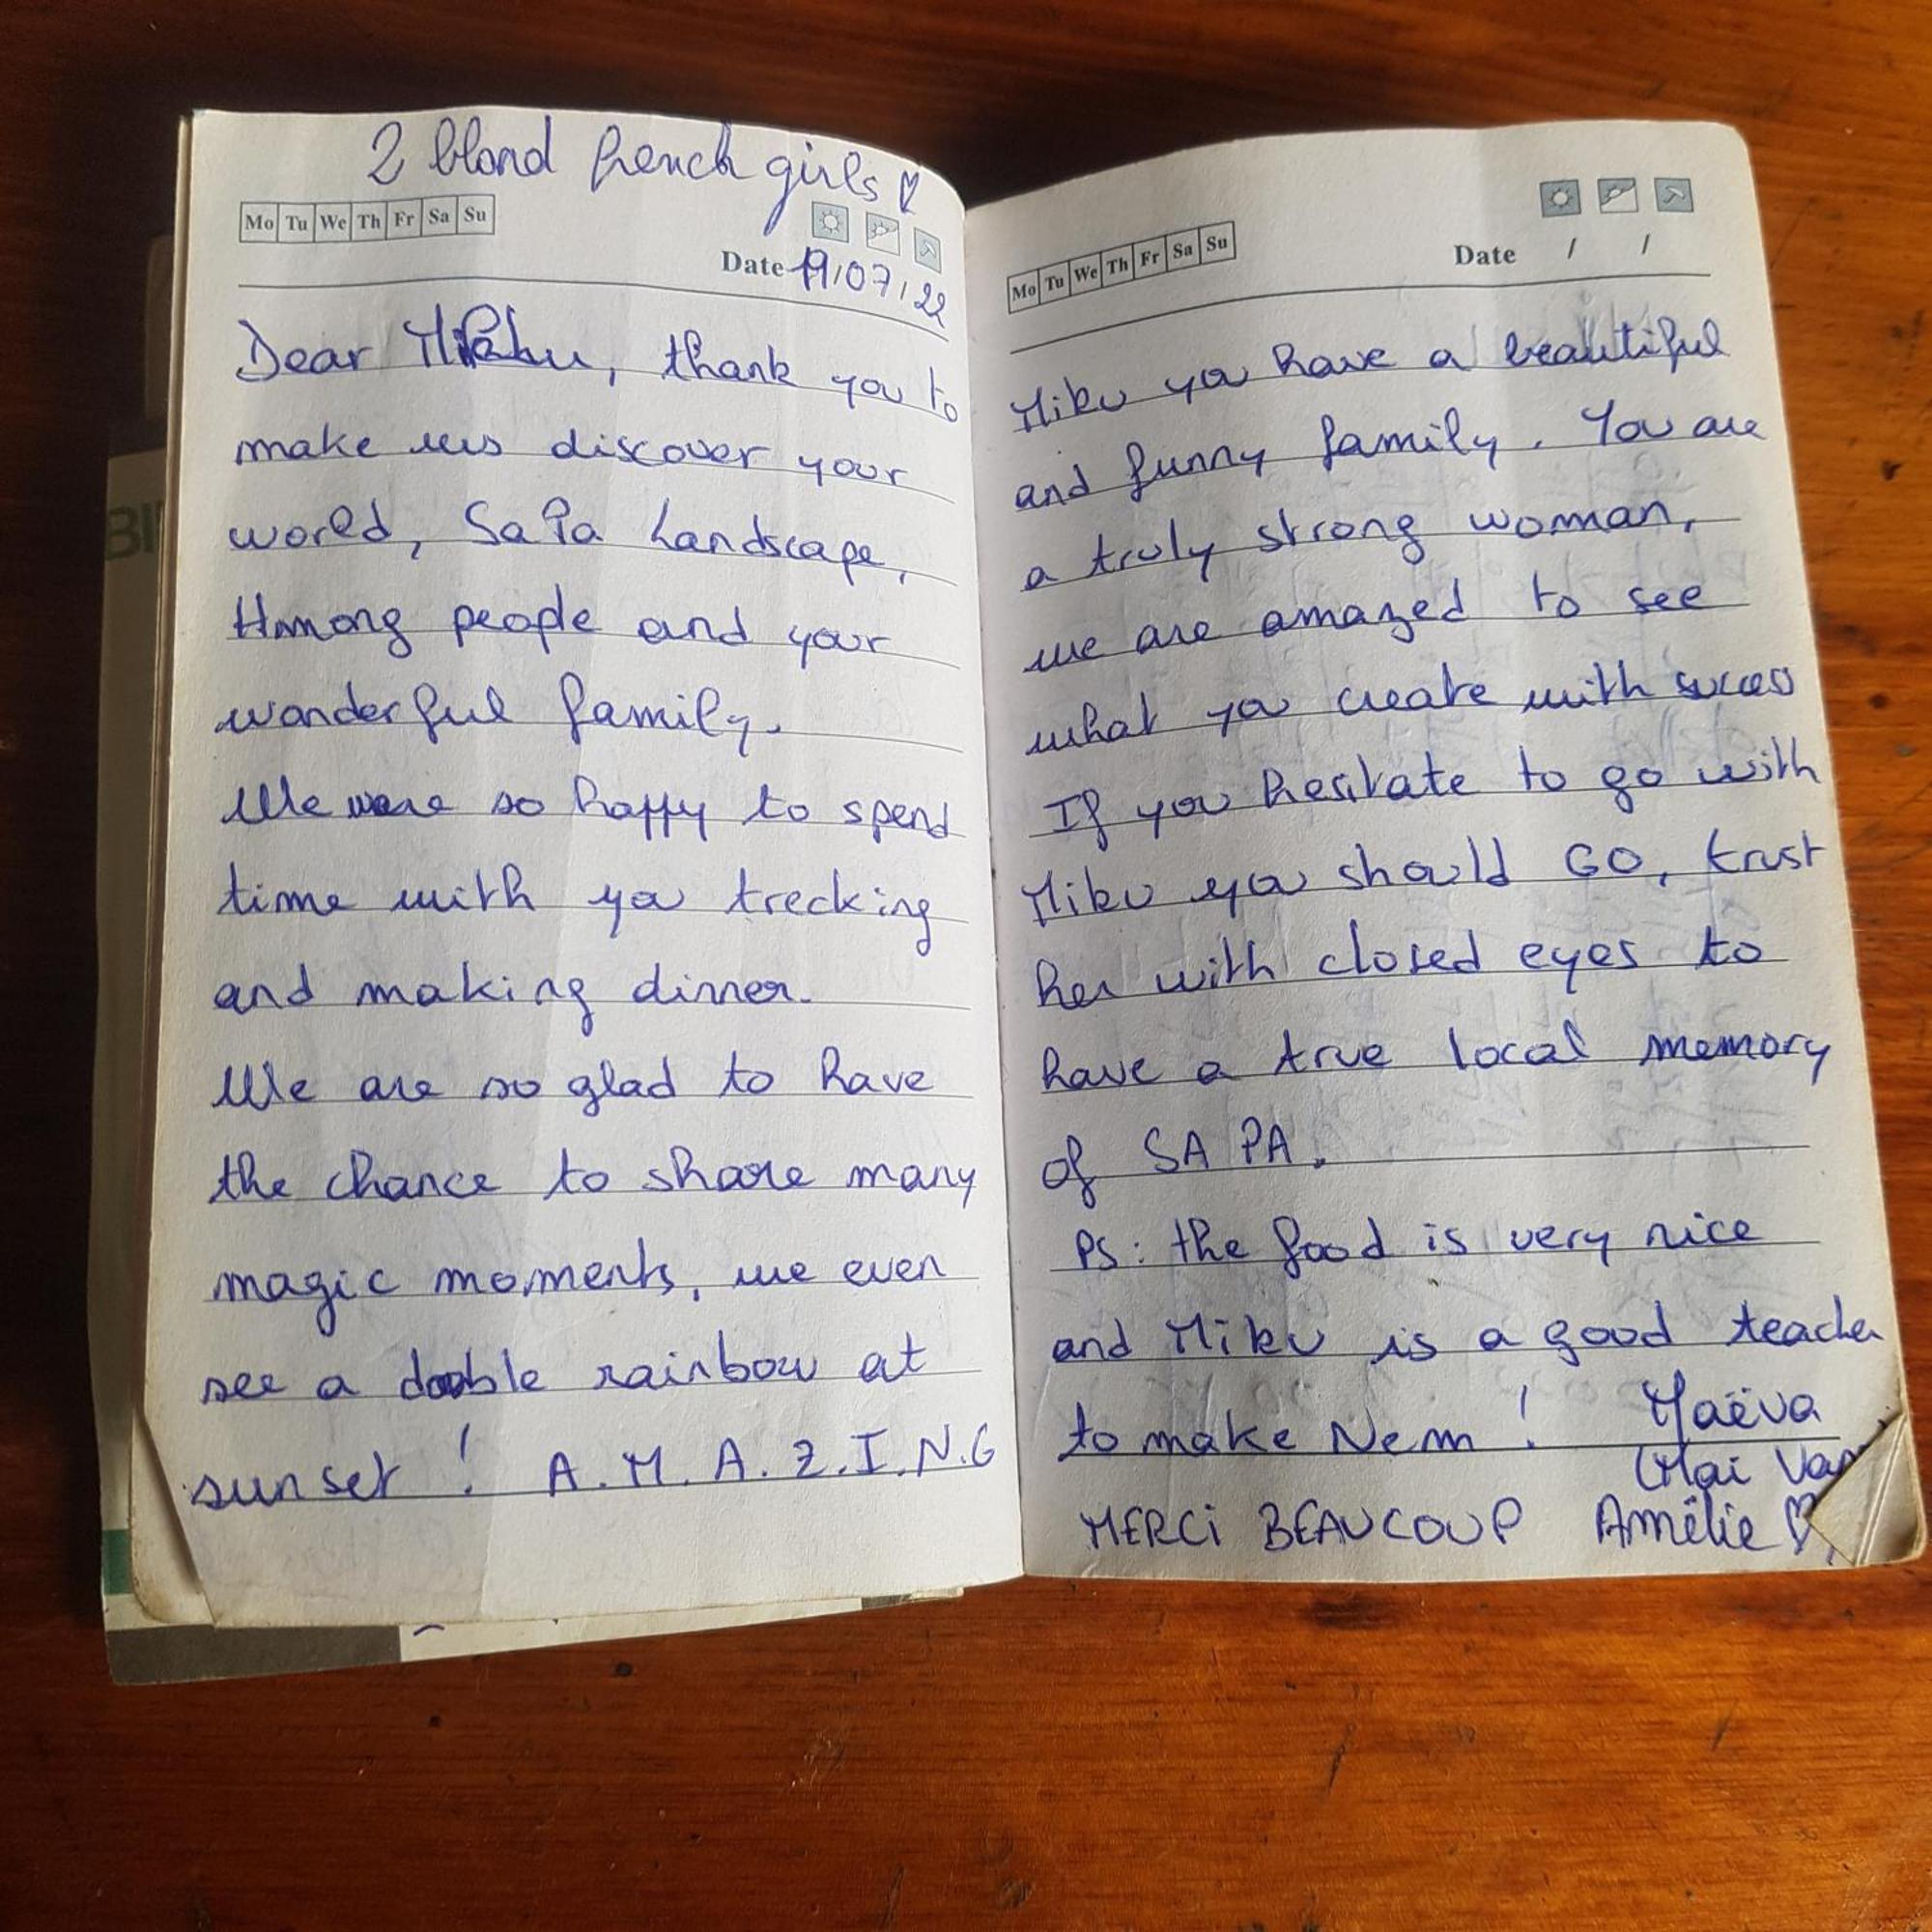 2 blond french girls ♡
Mo Tu We Th Fr Sa Su
Date 19/07/22
Dear Miku, thank you to
make us discover your
world, SaPa Landscape,
Hmong people and your
wonderful family.
We were so happy to spend
time with you trecking
and making dinner.
We are so glad to have
the chance to share many
magic moments, we even
see a double rainbow at
sunset ! A.M.A.Z.I.N.G
Mo Tu We Th Fr Sa Su
Date / /
Miku you have a beautiful
and funny family. You are
a truly strong woman,
we are amazed to see
what you create with succes
If you hesitate to go with
Miku you should GO, trust
her with closed eyes to
have a true local memory
of SA PA.
PS: the food is very nice
and Miku is a good teacher
to make Nem ! Maëva
(Mai Van
MERCi BEAUCOUP Amélie ♡